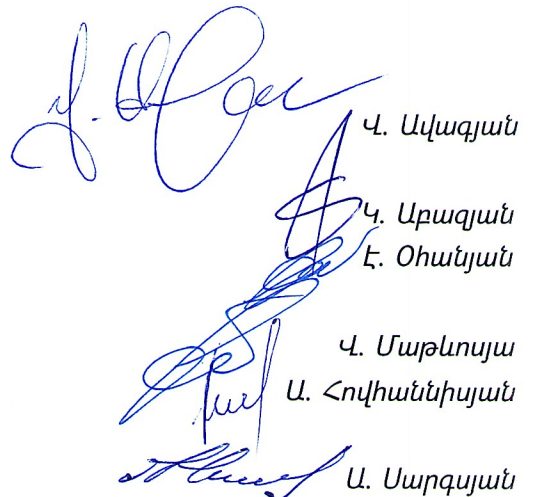 Վ. Ավագյան
Կ. Աբազյան
Է. Օհանյան
Վ. Մաթևոսյա
Ա. Հովհաննիսյան
Ա. Սարգսյան